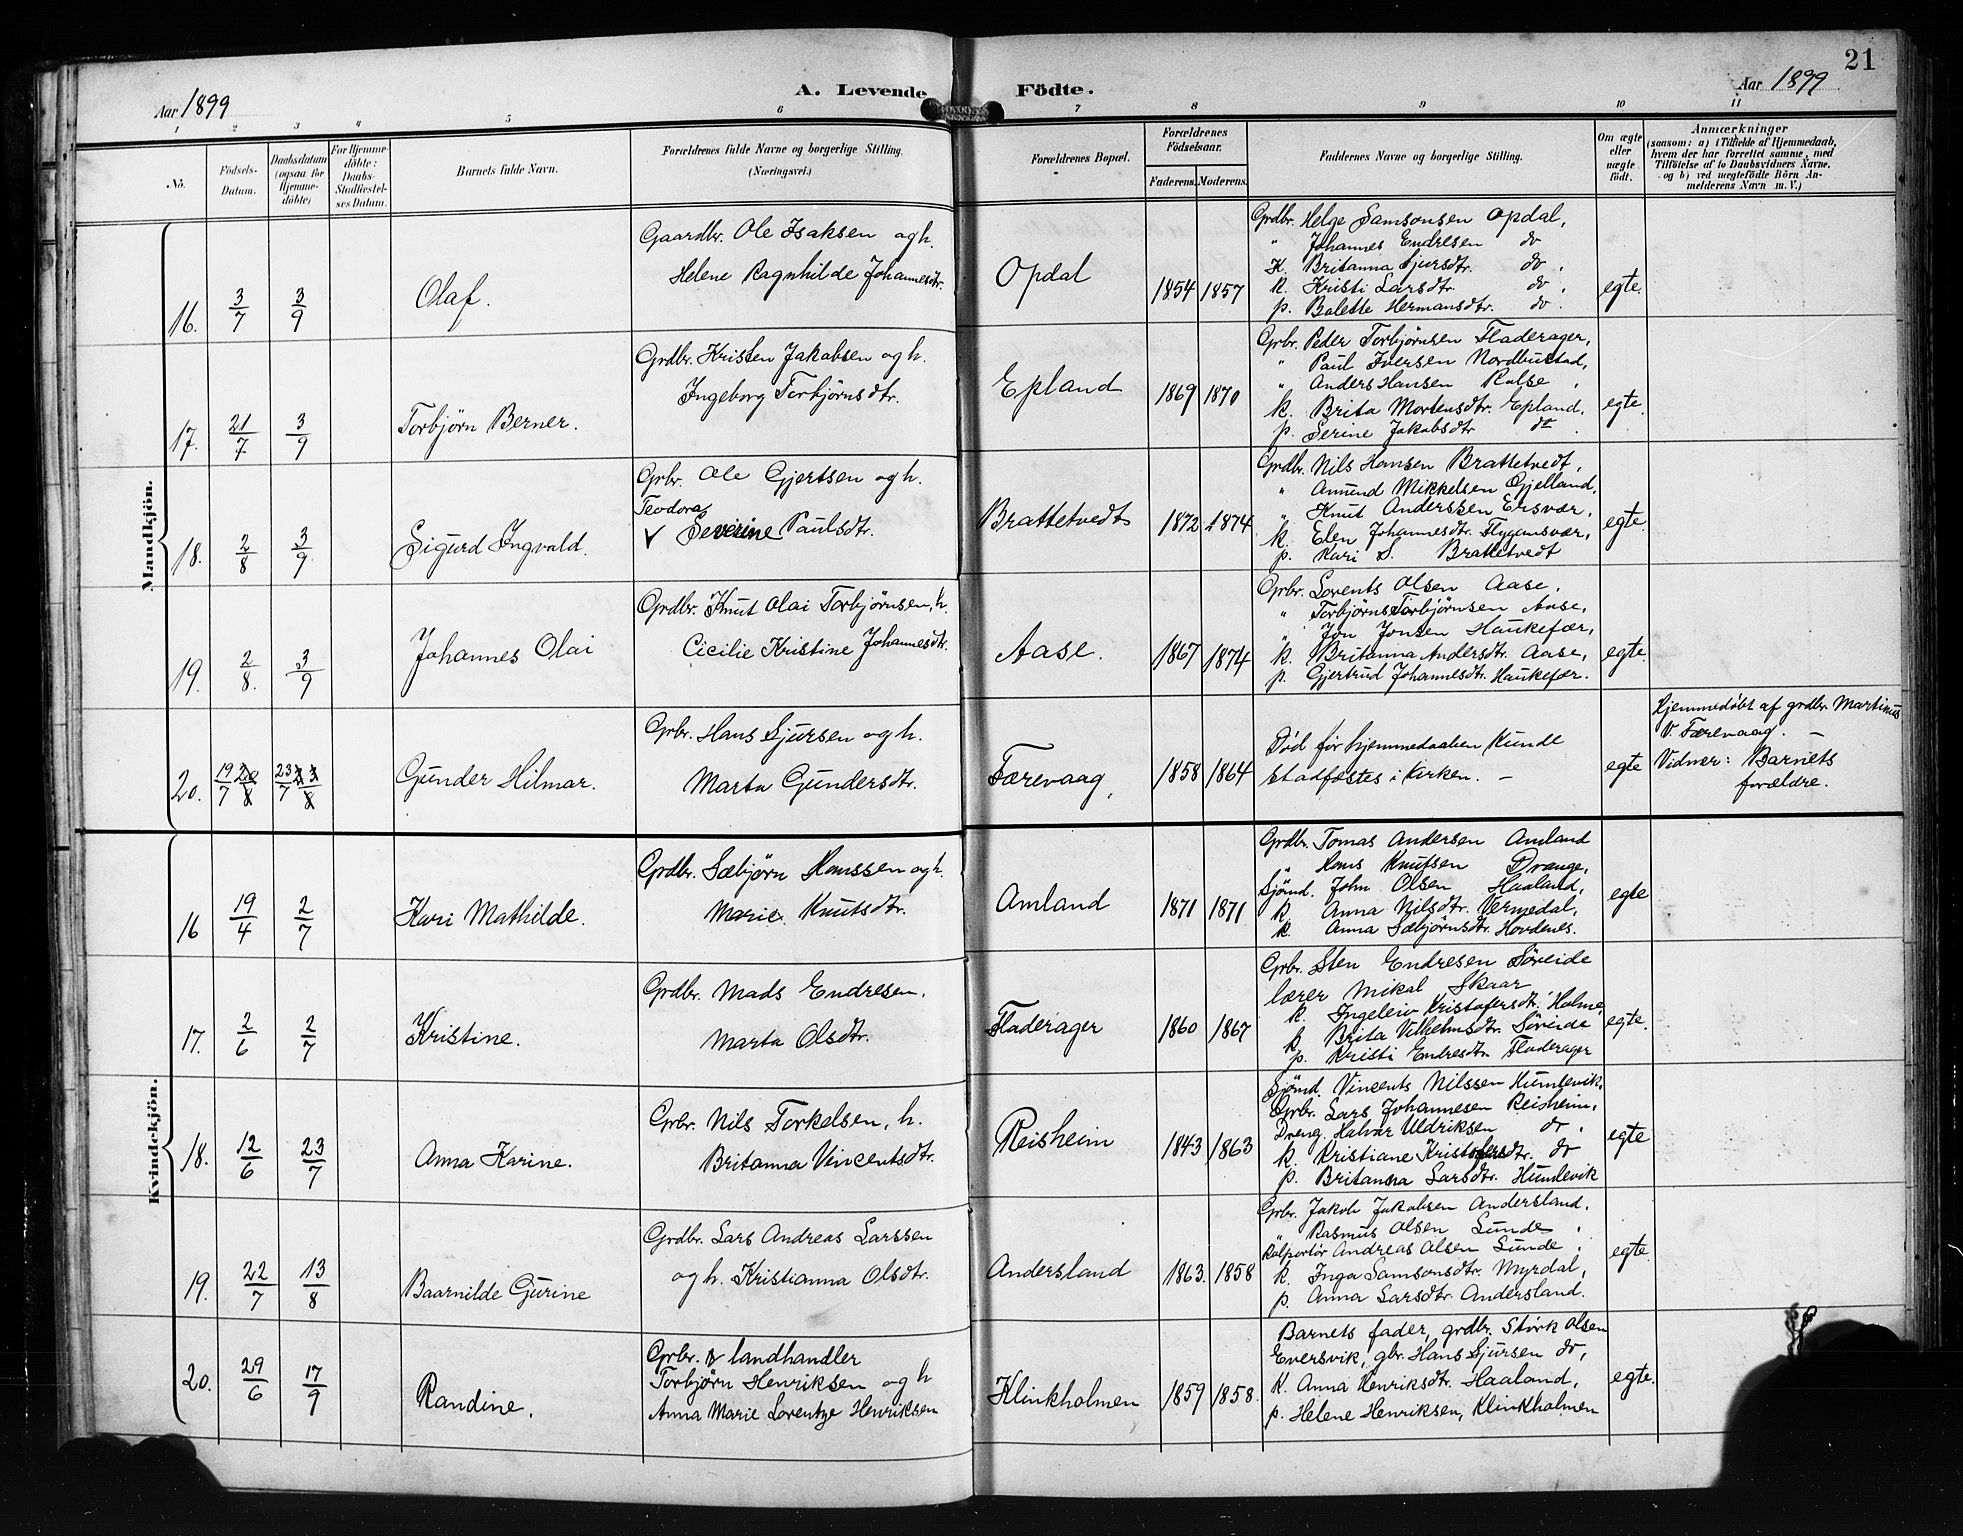 21
Aar 1899
A. Levende
Födte.
Aar 1899
1 2 3 4 5 6 7 8 9 10 11
No.
Födsels-
Datum.
Daabsdatum
(ogsaa for
Hjemme-
döbte)
For Hjemme-
döbte:
Daabs-
Stadfæstel-
ses Datum.
Barnets fulde Navn.
Forældrenes fulde Navne og borgerlige Stilling.
(Næringsvei.)
Forældrenes Bopæl.
Forældrenes
Födselsaar.
Faderens. Moderens.
Faddernes Navne og borgerlige Stilling.
Om ægte
eller
uægte
födt.
Anmærkninger
(saasom: a) i Tilfælde af Hjemmedaab,
hvem der har forrettet samme, med
Tilföielse af to Daabsvidners Navne,
og b) ved uægtefödte Börn An-
melderens Navn m. V.)
Mandkjön.
16. 3/7 3/9
Olaf.
Gaardbr. Ole Isaksen og h.
Helene Ragnhilde Johannesdtr.
Opdal
1854 1857
Grdbr. Helge Samsonsen Opdal,
" Johannes Endresen do
K. Britanna Sjursdtr. do.
k. Kristi Larsdtr. do.
p. Bolette Hermansdtr. do.
egte.
17. 21/7 3/9
Torbjørn Berner.
Grdbr. Kristen Jakobsen og h.
Ingeborg Torbjørnsdtr.
Epland
1869 1870
Grbr. Peder Torbjørnsen Fladerager,
" Paul Iversen Nordbustad,
" Anders Hansen Kalse,
k. Brita Mortensdtr. Epland.
p. Serine Jakobsdtr do.
egte.
18. 2/8 3/9
Sigurd Ingvald.
Grbr. Ole Gjertsen og h.
Teodora
V Severine Paulsdtr.
Brattetvedt
1872 1874
Grdbr. Nils Hansen Brattetvedt,
" Amund Mikkelsen Gjelland,
" Knut Anderssen Ersvær,
k. Elen Johannesdtr. Flygansvær,
p. Kari S. Brattetvedt
egte.
19. 2/8. 3/9
Johannes Olai
Grdbr. Knut Olai Torbjørnsen, h.
Cicilie Kristine Johannesdtr.
Aase.
1867 1874
Grbr. Lorents Olsen Aase,
" Torbjørn Torbjørnsen Aase,
" Jon Jonsen Haukefær,
k. Britanna Andersdtr. Aase,
p. Gjertrud Johannesdtr. Haukefær.
egte.
20. 19/7 20/8 23/7 3/8
Gunder Hilmar.
Grbr. Hans Sjursen og h.
Marta Gundersdtr.
Færevaag,
1858 1864
Død før hjemmedaaben kunde
stadfæstes i kirken. —
egte
Hjemmedøbt af grdbr. Martinus
V. Færevaag. —
Vidner: Barnets
forældre.
Kvindekjön.
16 19/4 2/7
Kari Mathilde.
Grdbr. Sæbjørn Hanssen og h.
Marie Knutsdtr.
Amland
1871 1871
Grdbr. Tomas Andersen Amland
" Hans Knutsen Drange,
Sjömd. John Olsen Haaland,
k. Anna Nilsdtr. Vermedal,
k. Anna Sæbjørnsdtr. Hovdenes.
egte
17. 2/6 2/7
Kristine.
Grdbr. Mads Endresen.
Marta Olsdtr.
Fladerager
1860 1867
Grbr. Sten Endresen Søreide
lærer Mikal Skaar
k. Ingeleiv Kristofersdtr. Holme,
k. Brita Vilhelmsdtr. Søreide
p. Kristi Endresdtr. Fladerager
egte.
18. 12/6 23/7
Anna Karine.
Grbr. Nils Torkelsen, h.
Britanna Vincentsdtr.
Reisheim
1843 1863
Sjömd. Vincents Nilssen Humlevik,
Grbr. Lars Johannesen Reisheim,
Dreng. Halvar Uldriksen do.
k. Kristiane Kristofersdtr. do
p. Britanna Larsdtr. Humlevik
egte
19. 22/7 13/8
Baarnilde Gurine
Grdbr. Lars Andreas Larssen
og h. Kristianna Olsdtr.
Andersland
1863. 1858
Grbr. Jakob Jakobsen Andersland.
" Rasmus Olsen Lunde.
Kolportør Andreas Olsen Lunde.
k. Inga Samsonsdtr. Myrdal,
p. Anna Larsdtr Andersland.
egte
20. 29/6 17/9
Randine.
Grbr. & landhandler
Torbjørn Henriksen og h
Anna Marie Lorentze Henriksen
Klinkholmen
1859 1858.
Barnets fader, grdbr. Störk Olsen
Eversvik, gbr. Hans Sjursen do,
k. Anna Henriksdtr. Haaland,
p. Helene Henriksen, Klinkholmen
egte.